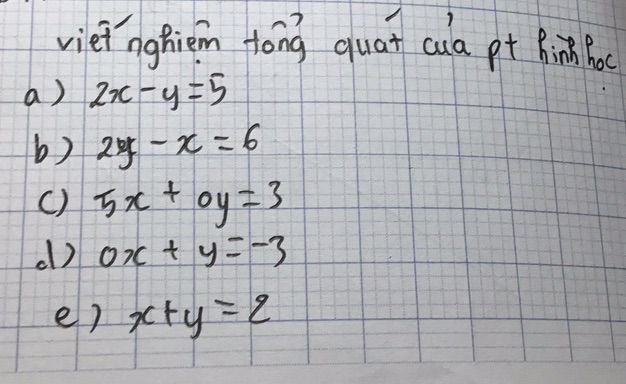 viết nghiệm tổng quát của pt hình học
a) 2x - y = 5
b) 2y - x = 6
c) 5x + 0y = 3
d) 0x + y = -3
e) x + y = 2